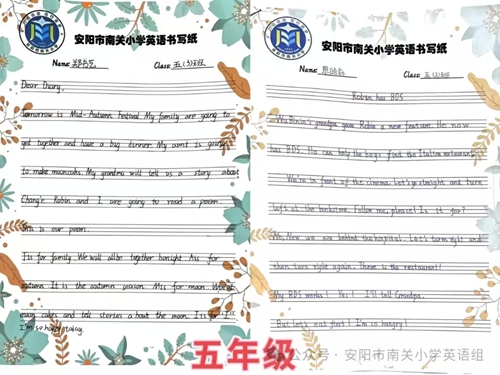 安阳市南关小学英语书写纸
Name: Class: 五(3)班
Dear Diary,
Tomorrow is Mid-Autumn Festival. My family are going to
get together and have a big dinner. My aunt is going
to make mooncakes. My grandma will tell us a story about
Chang'e. Robin and I are going to read a poem.
This is our poem.
F is for family. We will all be together tonight. A is for
autumn. It is the autumn season. M is for moon. We eat
moon cakes and tell stories about the moon. I is for I.
I'm so happy today.
安阳市南关小学英语书写纸
Name: Class: 五 班
Robin has BDS
Wu Binbin's grandpa gave Robin a new feature. He now
has BDS. He can help the boys find the Italian restaurant.
We're in front of the cinema. Let's go straight and turn
left at the bookstore. Follow me, please! Is it far?
No. Now we are behind the hospital. Let's turn right and
then turn right again. There is the restaurant!
My BDS works! Yes! I'll tell Grandpa.
But let's eat first! I'm so hungry!
五年级
公众号·安阳市南关小学英语组